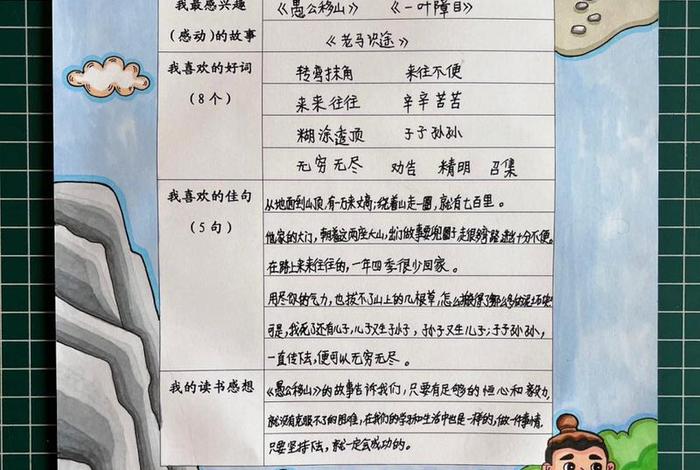 我最感兴趣 《愚公移山》 《一叶障目》
(感动)的故事 《老马识途》
我喜欢的好词 转弯抹角 来往不便
(8个) 来来往往 辛辛苦苦
糊涂透顶 子子孙孙
无穷无尽 劝告 精明 召集
我喜欢的佳句 从地面到山顶,有一万来丈高;绕着山走一圈,就有七百里。
(5句) 他家的大门,朝着这两座大山,出门做事要兜圈子走很多路,进出十分不便。
在路上来来往往的,一年四季很少回家。
用尽你的气力,也拔不了山上的几根草,怎么搬得了那么多的泥
可是,我死了还有儿子,儿子又生孙子,孙子又生儿子;子子孙孙,
一直传下去,便可以无穷无尽。
我的读书感想 《愚公移山》的故事告诉我们,只要有足够的恒心和毅力,
就没有克服不了的困难,在我们的学习和生活中也是一样的,做一件事情,
只要坚持下去,就一定会成功的。